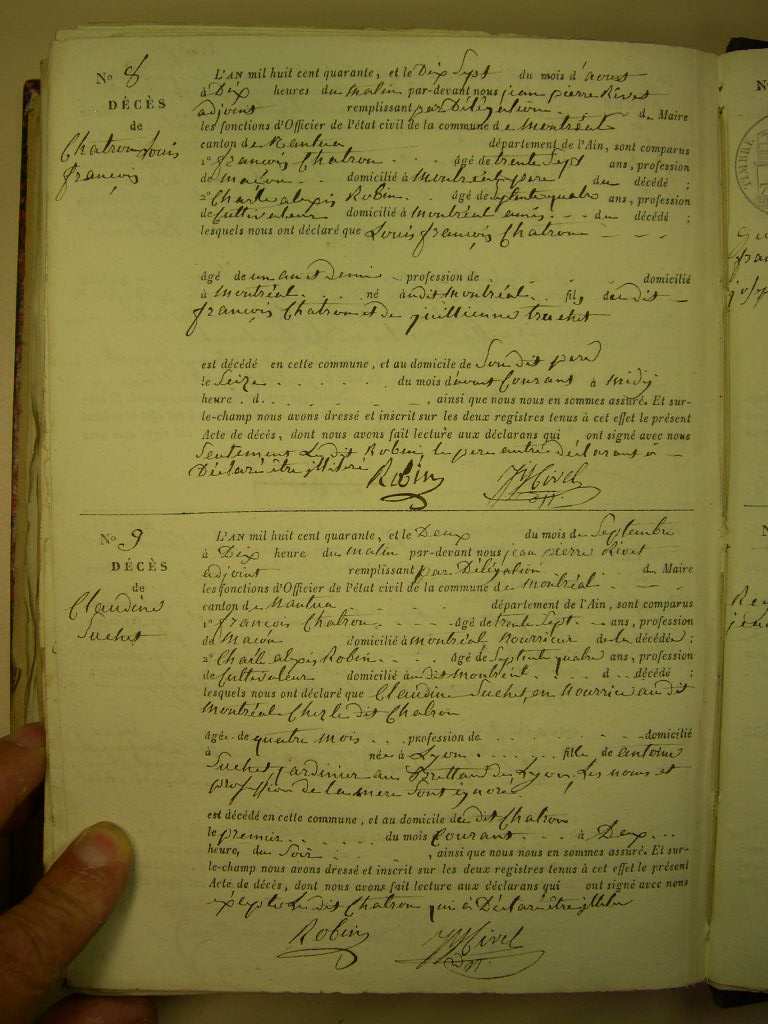 No 8
DÉCÈS
de
Chatron Louis
françois
L'AN mil huit cent quarante, et le Dix Sept du mois d'aoust
à Dix heures du Matin par-devant nous jean pierre Rivet
adjoint remplissant par Délégation du Maire
les fonctions d'Officier de l'état civil de la commune de Montréal
canton de Nantua département de l'Ain, sont comparus
1º françois Chatron âgé de trente Sept ans, profession
de maçon domicilié à Montréal père du décédé ;
2º Charle alexis Robin âgé de Septente quatre ans, profession
de Cultivateur domicilié à Montréal du décédé ;
lesquels nous ont déclaré que Louis françois Chatron
âgé de un an et Demie profession de domicilié
à Montréal né audit Montréal fils du dit
françois Chatron et de juillienne truchet
est décédé en cette commune, et au domicile de Son dit pere
le Seize du mois d'aoust Courant à Midy
heure d , ainsi que nous nous en sommes assuré. Et sur-
le-champ nous avons dressé et inscrit sur les deux registres tenus à cet effet le présent
Acte de décès, dont nous avons fait lecture aux déclarans qui ont signé avec nous
Seulement Le dit Robin, le pere entré déclarant à
Déclaré être illitéré
Robin
No 9
DÉCÈS
de
Claudine
Suchet
L'AN mil huit cent quarante, et le Deux du mois de Septembre
à Dix heure du Matin par-devant nous jean pierre Rivet
adjoint remplissant par Délégation du Maire
les fonctions d'Officier de l'état civil de la commune de Montréal
canton de Nantua département de l'Ain, sont comparus
1º françois Chatron âgé de trente Sept ans, profession
de Maçon domicilié à Montréal Nourricier de la décédée ;
2º Charle alexis Robin âgé de Septente quatre ans, profession
de Cultivateur domicilié audit Montréal d décédé ;
lesquels nous ont déclaré que Claudine Suchet, en Nourrice audit
Montréal Chez le dit Chatron
âgée de quatre Mois profession de domicilié
à née à Lyon fille de antoine
Suchet, jardinier aux Brottaux de Lyon, Les noms et
profession de la mere Sont ignoré
est décédé en cette commune, et au domicile du dit Chatron
le premier du mois Courant à Deux
heure, du Soir , ainsi que nous nous en sommes assuré. Et sur-
le-champ nous avons dressé et inscrit sur les deux registres tenus à cet effet le présent
Acte de décès, dont nous avons fait lecture aux déclarans qui ont signé avec nous
éxépté Le dit Chatron qui à Déclaré être
Robin
TIMBRE